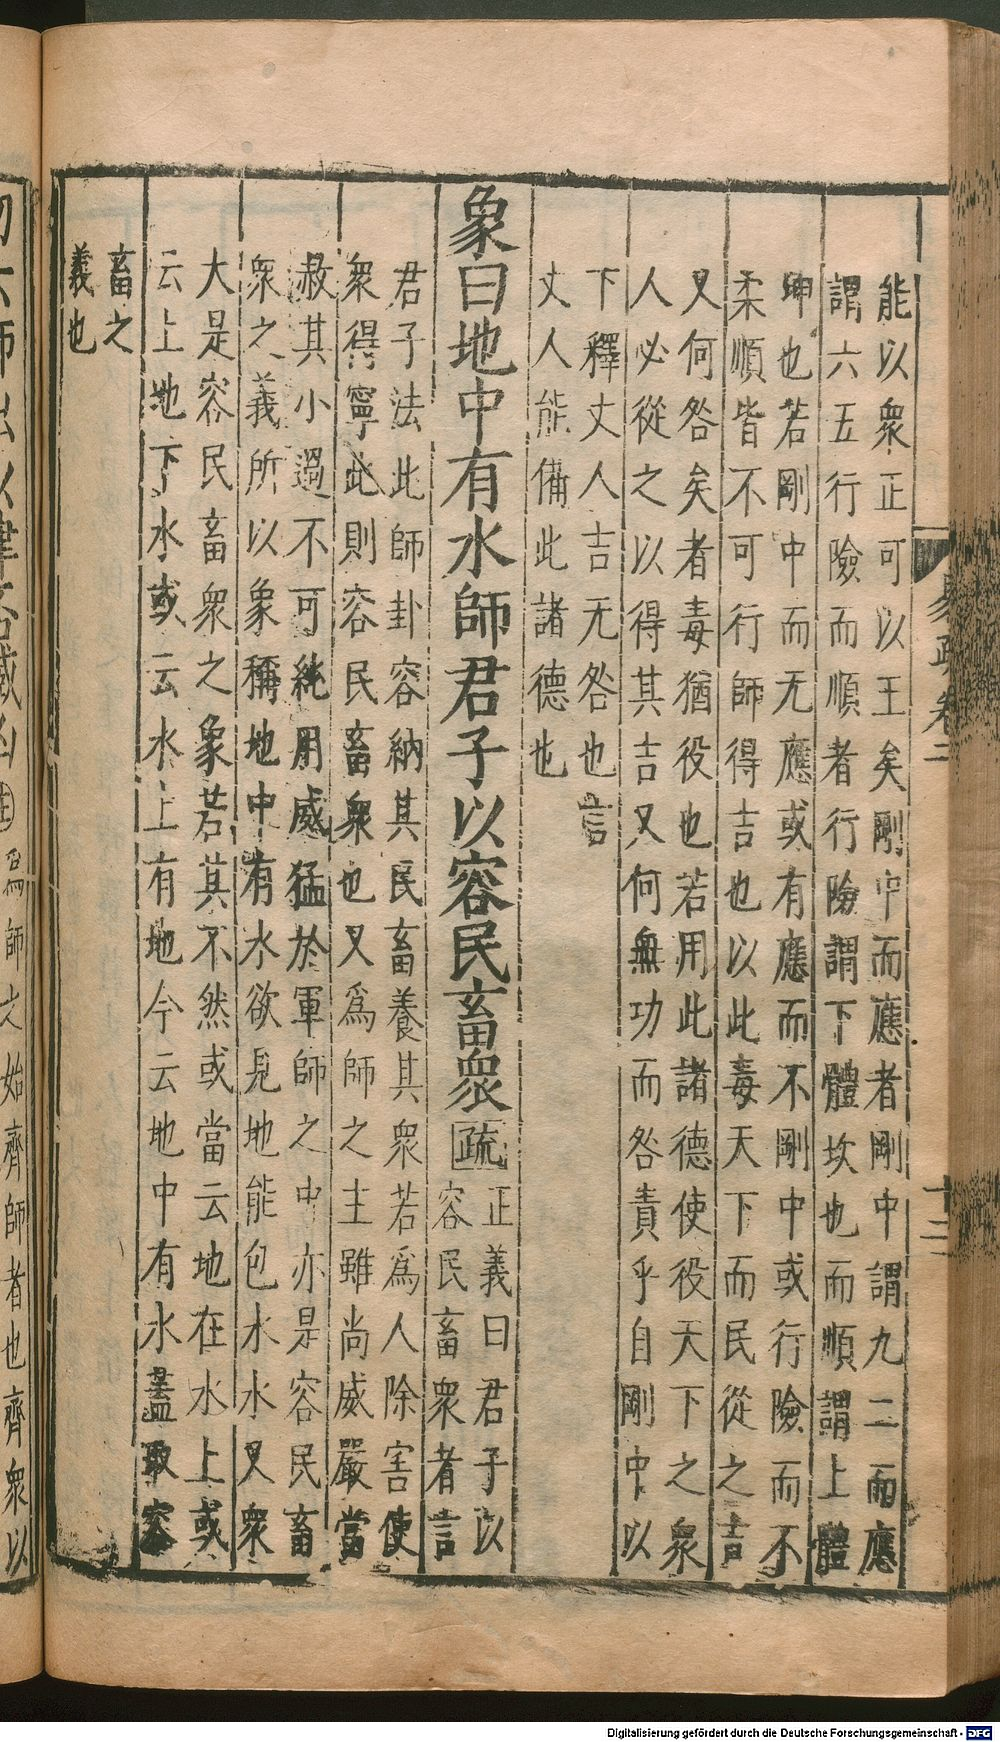 易疏卷二
十三
能以衆正可以王矣剛中而應者剛中謂九二而應
謂六五行險而順者行險謂下體坎也而順謂上體
坤也若剛中而无應或有應而不剛中或行險而不
柔順皆不可行師得吉也以此毒天下而民從之吉
又何咎矣者毒猶役也若用此諸德使役天下之衆
人必從之以得其吉又何無功而咎責乎自剛中以
下釋丈人吉无咎也言
丈人能備此諸德也
象曰地中有水師君子以容民畜衆疏正義曰君子以
容民畜衆者言
君子法此師卦容納其民畜養其衆若爲人除害使
衆得寧此則容民畜衆也又爲師之主雖尚威嚴當
赦其小過不可純用威猛於軍師之中亦是容民畜
衆之義所以象稱地中有水欲見地能包水水又衆
大是容民畜衆之象若其不然或當云地在水上或
云上地下水或云水上有地今云地中有水蓋取容
畜之
義也
初六師出以律否臧凶注爲師之始齊師者也齊衆以
Digitalisierung gefördert durch die Deutsche Forschungsgemeinschaft - DFG